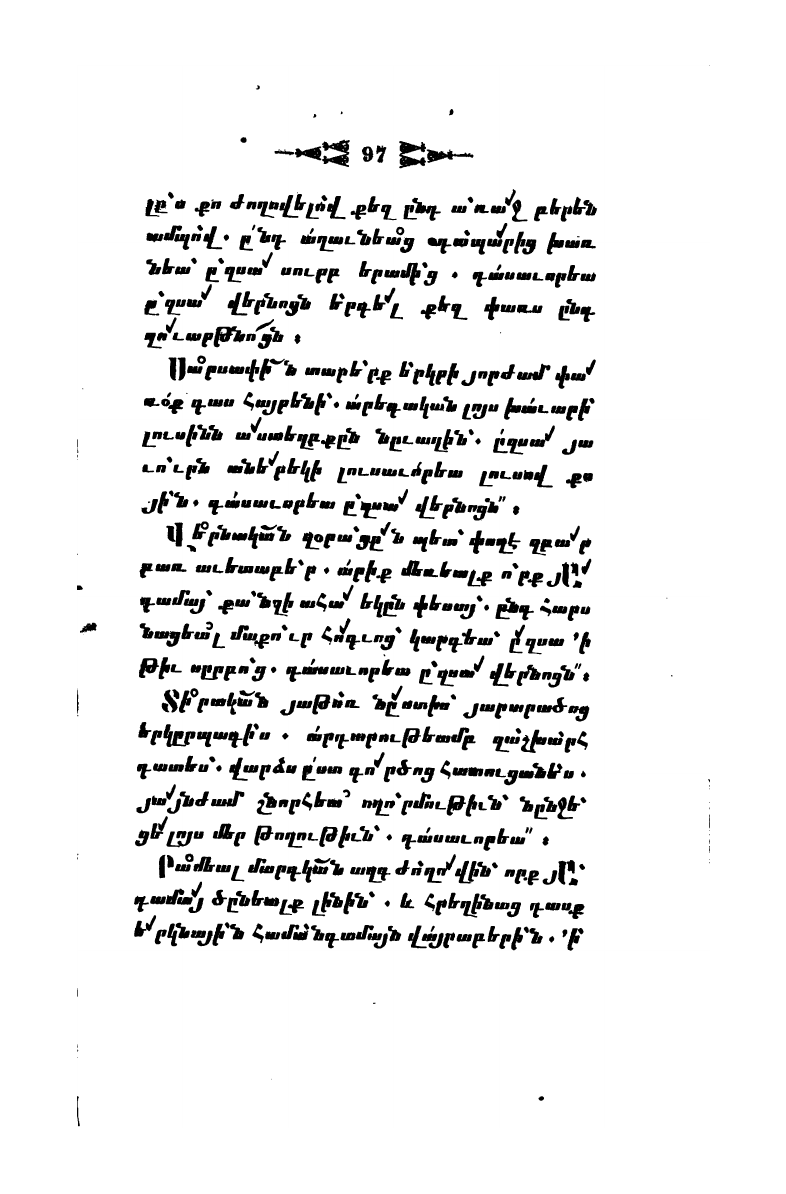 97
լք՝ս քո ժողովելո՛վ քեզ ընդ ա՝ռա՜ջ բերեն
ամպո՛վ. ը՛նդ ա՛ղաւնեա՛ց պարպա՛րից խառ
նեա՝ ը՝զսա՜ սուրբ երամի՝ց. դա՛սաւորեա
ը՝զսա՜ վերնոցն ե՛րգե՜լ քեզ փառս ընդ
զո՜ւարթնո՜ցն ։
Սա՛րսափի՜ն տարե՛րք ե՛րկրի յորժամ փա՜
ռօք գաս Հայրենի՝. ա՛րեգական լոյս խա՛ւարի՛
լուսինն ա՜ստեղքըն նըւաղին՝. ը՛զսա՜ յա
ւո՝ւրն անե՜րեկի լուսաւո՛րեա լուսով քո
յի՝ն. դա՛սաւորեա ը՝զսա՜ վերնոցն" ։
Վե՛րնակա՜ն զօրա՝ցը՜ն պետ՝ փողէ զբա՜ր
բառ աւետաբե՝ր. ա՛րիք մեռեալք ո՝րք յԱ՜
դամայ՝ քա՝նզի ահա՜ եկըն փեսայ՝. ընդ Հարս
նացեա՛լ մաքո՝ւր Հո՜գւոց՝ կարգեա՝ ը՜զսա ՚ի
Թիւ սըրբո՝ց. դա՛սաւորեա ը՝զսա՜ վերնոցն"։
Տի՛րակա՜ն յաթոռ նը՜ստիս՝ յարարածոց
երկըրպագի՛ս. ա՛րդարութեամբ զա՛շխա՛րՀ
դատես՝. վարձս ը՛ստ գո՜րծոց Հատուցանե՛ս.
յա՜յնժամ շնորՀեա՛ ողո՝րմութիւն՝ նընջե՝
ցե՜լոյս մեր Թողութիւն՝. դա՛սաւորեա" ։
Րա՛մեալ մարդկա՜ն ազգ ժո՛ղո՜վին՝ որք յԱ՝
դամա՜յ ծընեալք լինին՝. և Հրեղինաց դասք
ե՜րկնայի՝ն Համա՛նգամայն վա՛յրաբերի՝ն. ՚ի՛